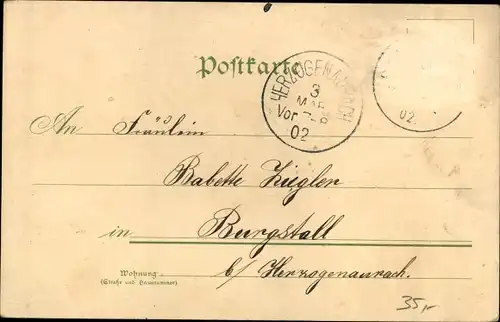 Postkarte
HERZOGENAURACH
3
MAR
Vor. 7-8
02
02.
An Fräulein
Babette Ziegler
in Burgstall
b/ Herzogenaurach.
Wohnung
(Straße und Hausnummer)
35,-